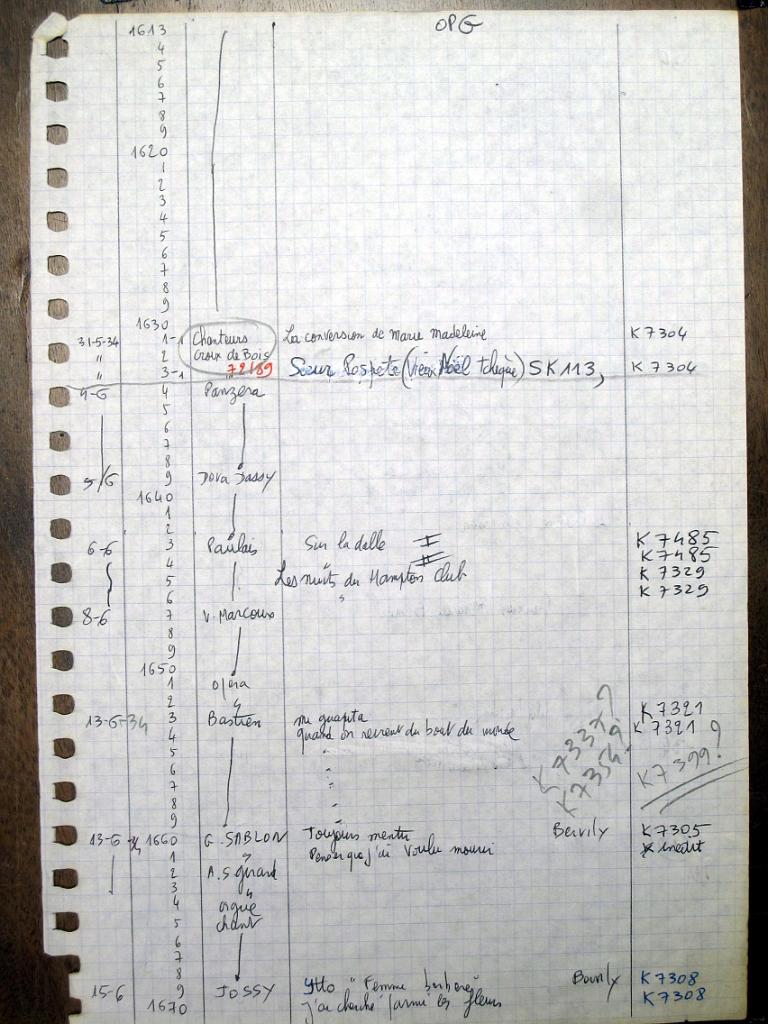 OPG
1613
4
5
6
7
8
9
1620
1
2
3
4
5
6
7
8
9
1630
31-5-34 1-1 Chanteurs La conversion de Marie Madeleine K 7304
" 2 Croix de Bois
" 3-1 72189 Sœur Pospete (Vieux Noël tchèque) SK 113, K 7304
4-6 4 Panzera
5
6
7
8
5/6 9 Dova Jassy
1640
1
2
6-6 3 Paulais Sur la dalle I K 7485
4 II K 7485
5 Les nuits du Hampton Club K 7329
6 " K 7329
8-6 7 V. Marcoux
8
9
1650
1 Opéra
2 "
13-6-34 3 Bastien mi guapita K 7321
4 quand on revient du bout du monde K 7321
5 "
6 "
7 "
8 "
9 "
K 733X?
K 7354?
K 7399?
13-6-34 1660 G. SABLON Toujours mentir Bervily K 7305
1 " Penser que j'ai voulu mourir inédit
2 A.S. Girard
3 "
4 orgue
5 chant
6
7
8
15-6 9 JOSSY Ytto "Femme berbère" Bervily K 7308
1670 j'ai cherché parmi les fleurs K 7308